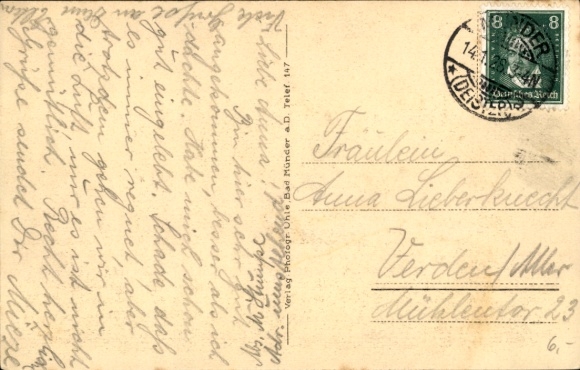 Liebe Anna!
Bin hier sehr gut
angekommen, besser als ich
dachte. Habe mich schon
gut eingelebt. Schade daß
es immer regnet, aber
trotzdem gehen wir in
die Luft nur es ist nicht
gemütlich. Recht herzl.
Grüße sendet Dir
Viele Grüße an Deine
Eltern
Verlag Photogr. Uhle, Bad Münder a. D. Telef. 147
8 8
Deutsches Reich
MÜNDER
(DEISTER)
14.1.
Fräulein
Anna Lieberknecht
Verden/Aller
Mühlentor 23
6.-